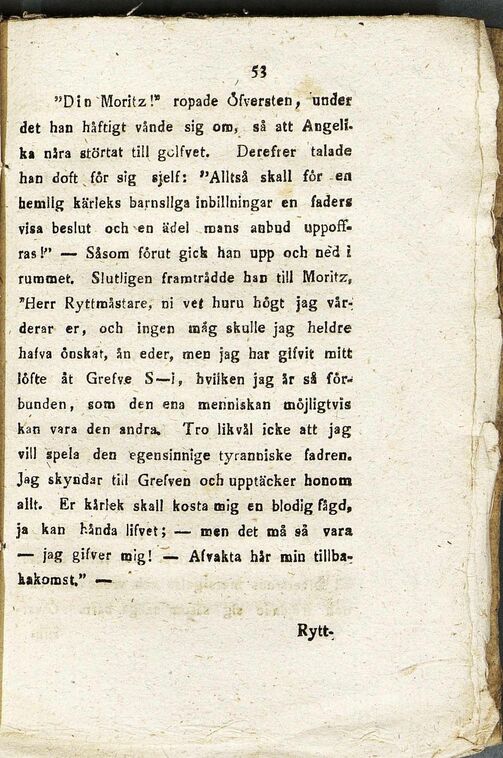 53
”Din Moritz!” ropade Öfversten, under
det han häftigt vände sig om, så att Angeli-
ka nära störtat till golfvet. Derefter talade
han doft för sig sjelf: ”Alltså skall för en
hemlig kärleks barnsliga inbillningar en faders
visa beslut och en ädel mans anbud uppoff-
ras!” — Såsom förut gick han upp och ned i
rummet. Slutligen framträdde han till Moritz,
”Herr Ryttmästare, ni vet huru högt jag vär-
derar er, och ingen måg skulle jag heldre
hafva önskat, än eder, men jag har gifvit mitt
löfte åt Grefve S—i, hvilken jag är så för-
bunden, som den ena menniskan möjligtvis
kan vara den andra. Tro likväl icke att jag
vill spela den egensinnige tyranniske fadren.
Jag skyndar till Grefven och upptäcker honom
allt. Er kärlek skall kosta mig en blodig fägd,
ja kan hända lifvet; — men det må så vara
— jag gifver mig! — Afvakta här min tillba-
kakomst.” —
Rytt-